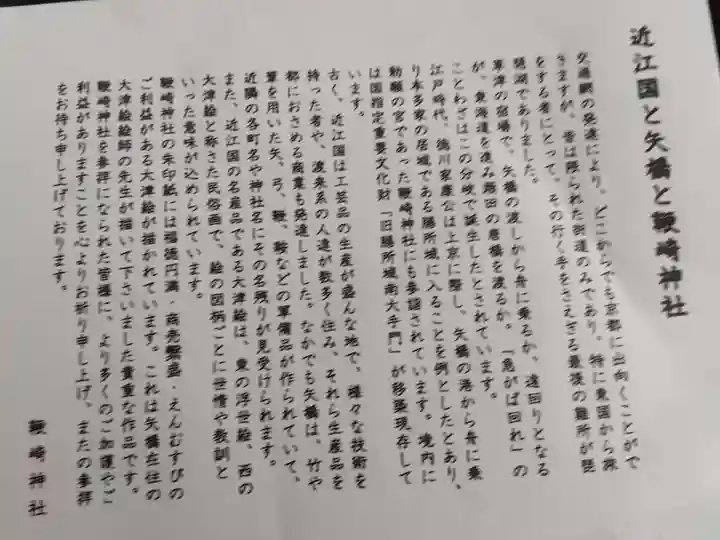 近江国と矢橋と鞭崎神社
交通網の発達により、どこからでも京都に出向くことがで
きますが、昔は限られた街道のみであり、特に東国から旅
をする者にとって、その行く手をさえぎる最後の難所が琵
琶湖でありました。
草津の宿場で、矢橋の渡しから舟に乗るか、遠回りとなる
が、東海道を進み瀬田の唐橋を渡るか。「急がば回れ」の
ことわざはこの分岐で誕生したとされています。
江戸時代、徳川家康公は上京に際し、矢橋の港から舟に乗
り本多家の居城である膳所城に入ることを例としたとあり、
勅願の宮であった鞭崎神社にも参詣されています。境内に
は国指定重要文化財「旧膳所城南大手門」が移築現存して
います。
古く、近江国は工芸品の生産が盛んな地で、様々な技術を
持った者や、渡来系の人達が数多く住み、それら生産品を
都におさめる商業も発達しました。なかでも矢橋は、竹や
葦を用いた矢、弓、鞭、鞍などの軍備品が作られていて、
近隣の各町名や神社名にその名残りが見受けられます。
また、近江国の名産品である大津絵は、東の浮世絵、西の
大津絵と称された民俗画で、絵の図柄ごとに世情や教訓と
いった意味が込められています。
鞭崎神社の朱印紙には福徳円満・商売繁盛・えんむすびの
ご利益がある大津絵が描かれています。これは矢橋在住の
大津絵絵師の先生が描いて下さいました貴重な作品です。
鞭崎神社を参拝になられた皆様に、より多くのご加護やご
利益がありますことを心よりお祈り申し上げ、またの参拝
をお待ち申し上げております。
鞭崎神社